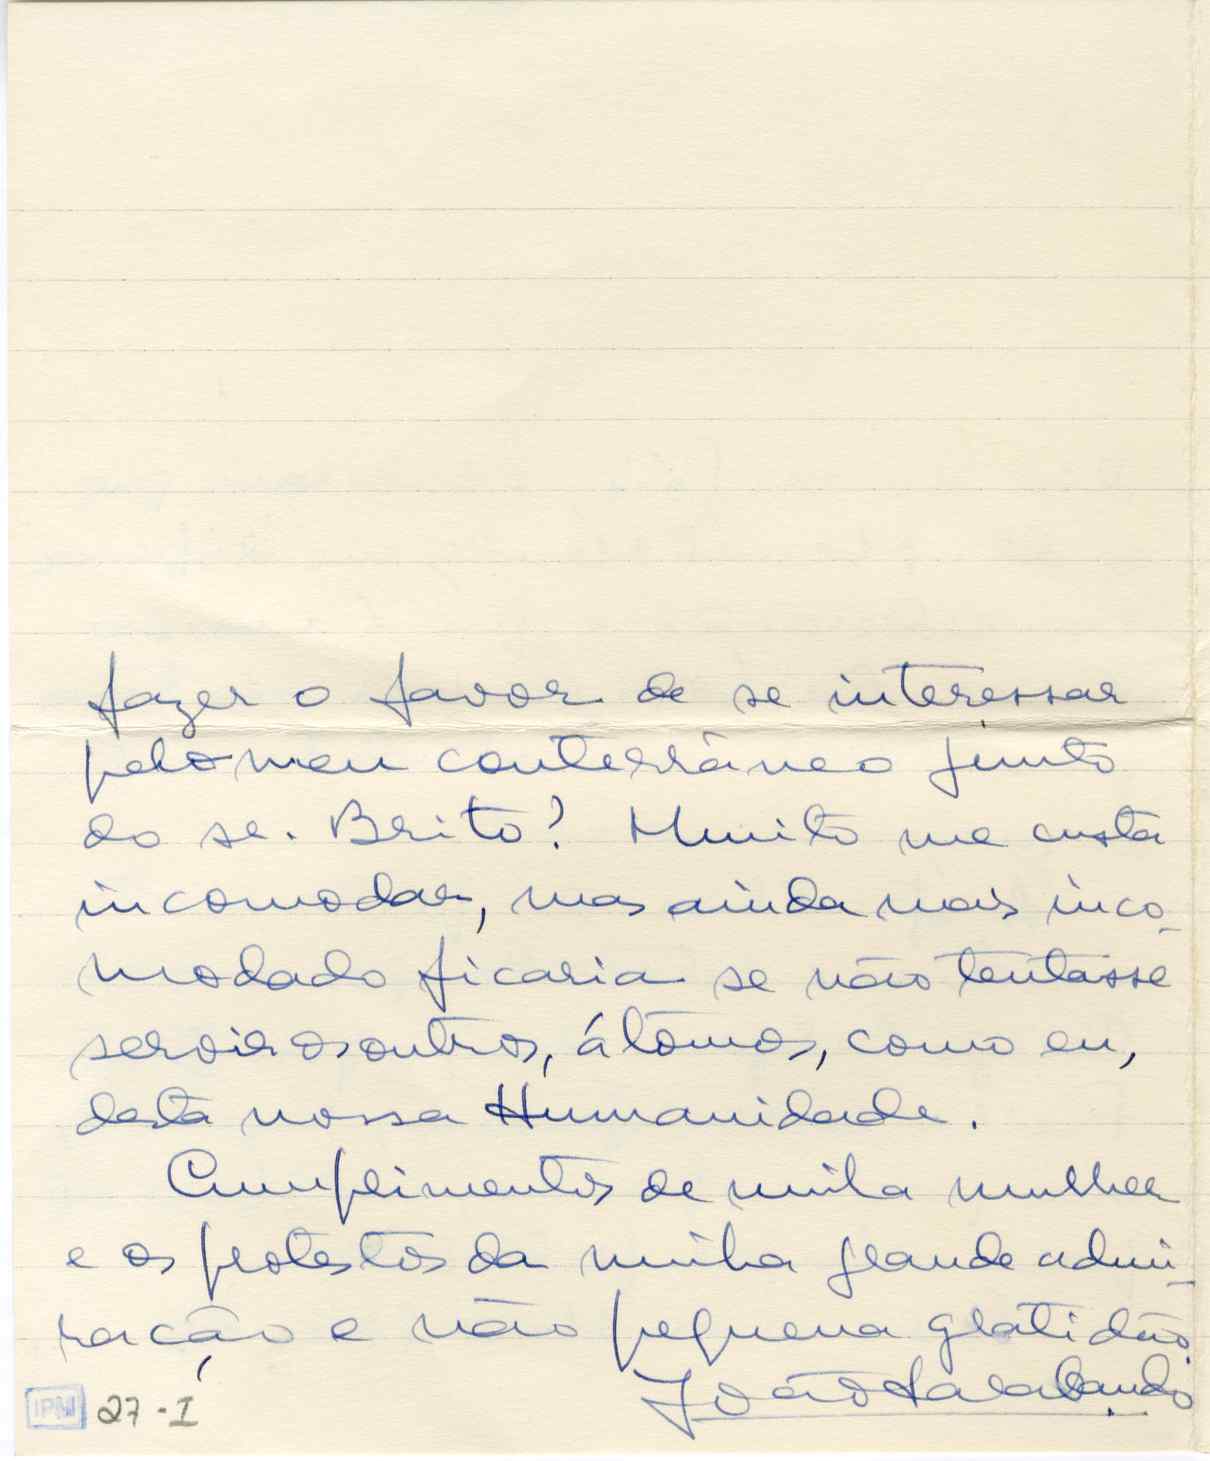 fazer o favor de se interessar
pelo meu conterrâneo junto
do sr. Brito? Muito me custa
incomodar, mas ainda mais inco-
modado ficaria se não tentasse
servir os outros, átomos, como eu,
desta nossa Humanidade.
Cumprimentos de minha mulher
e os protestos da minha grande admi-
ração e não pequena gratidão.
João
IPM 27-I